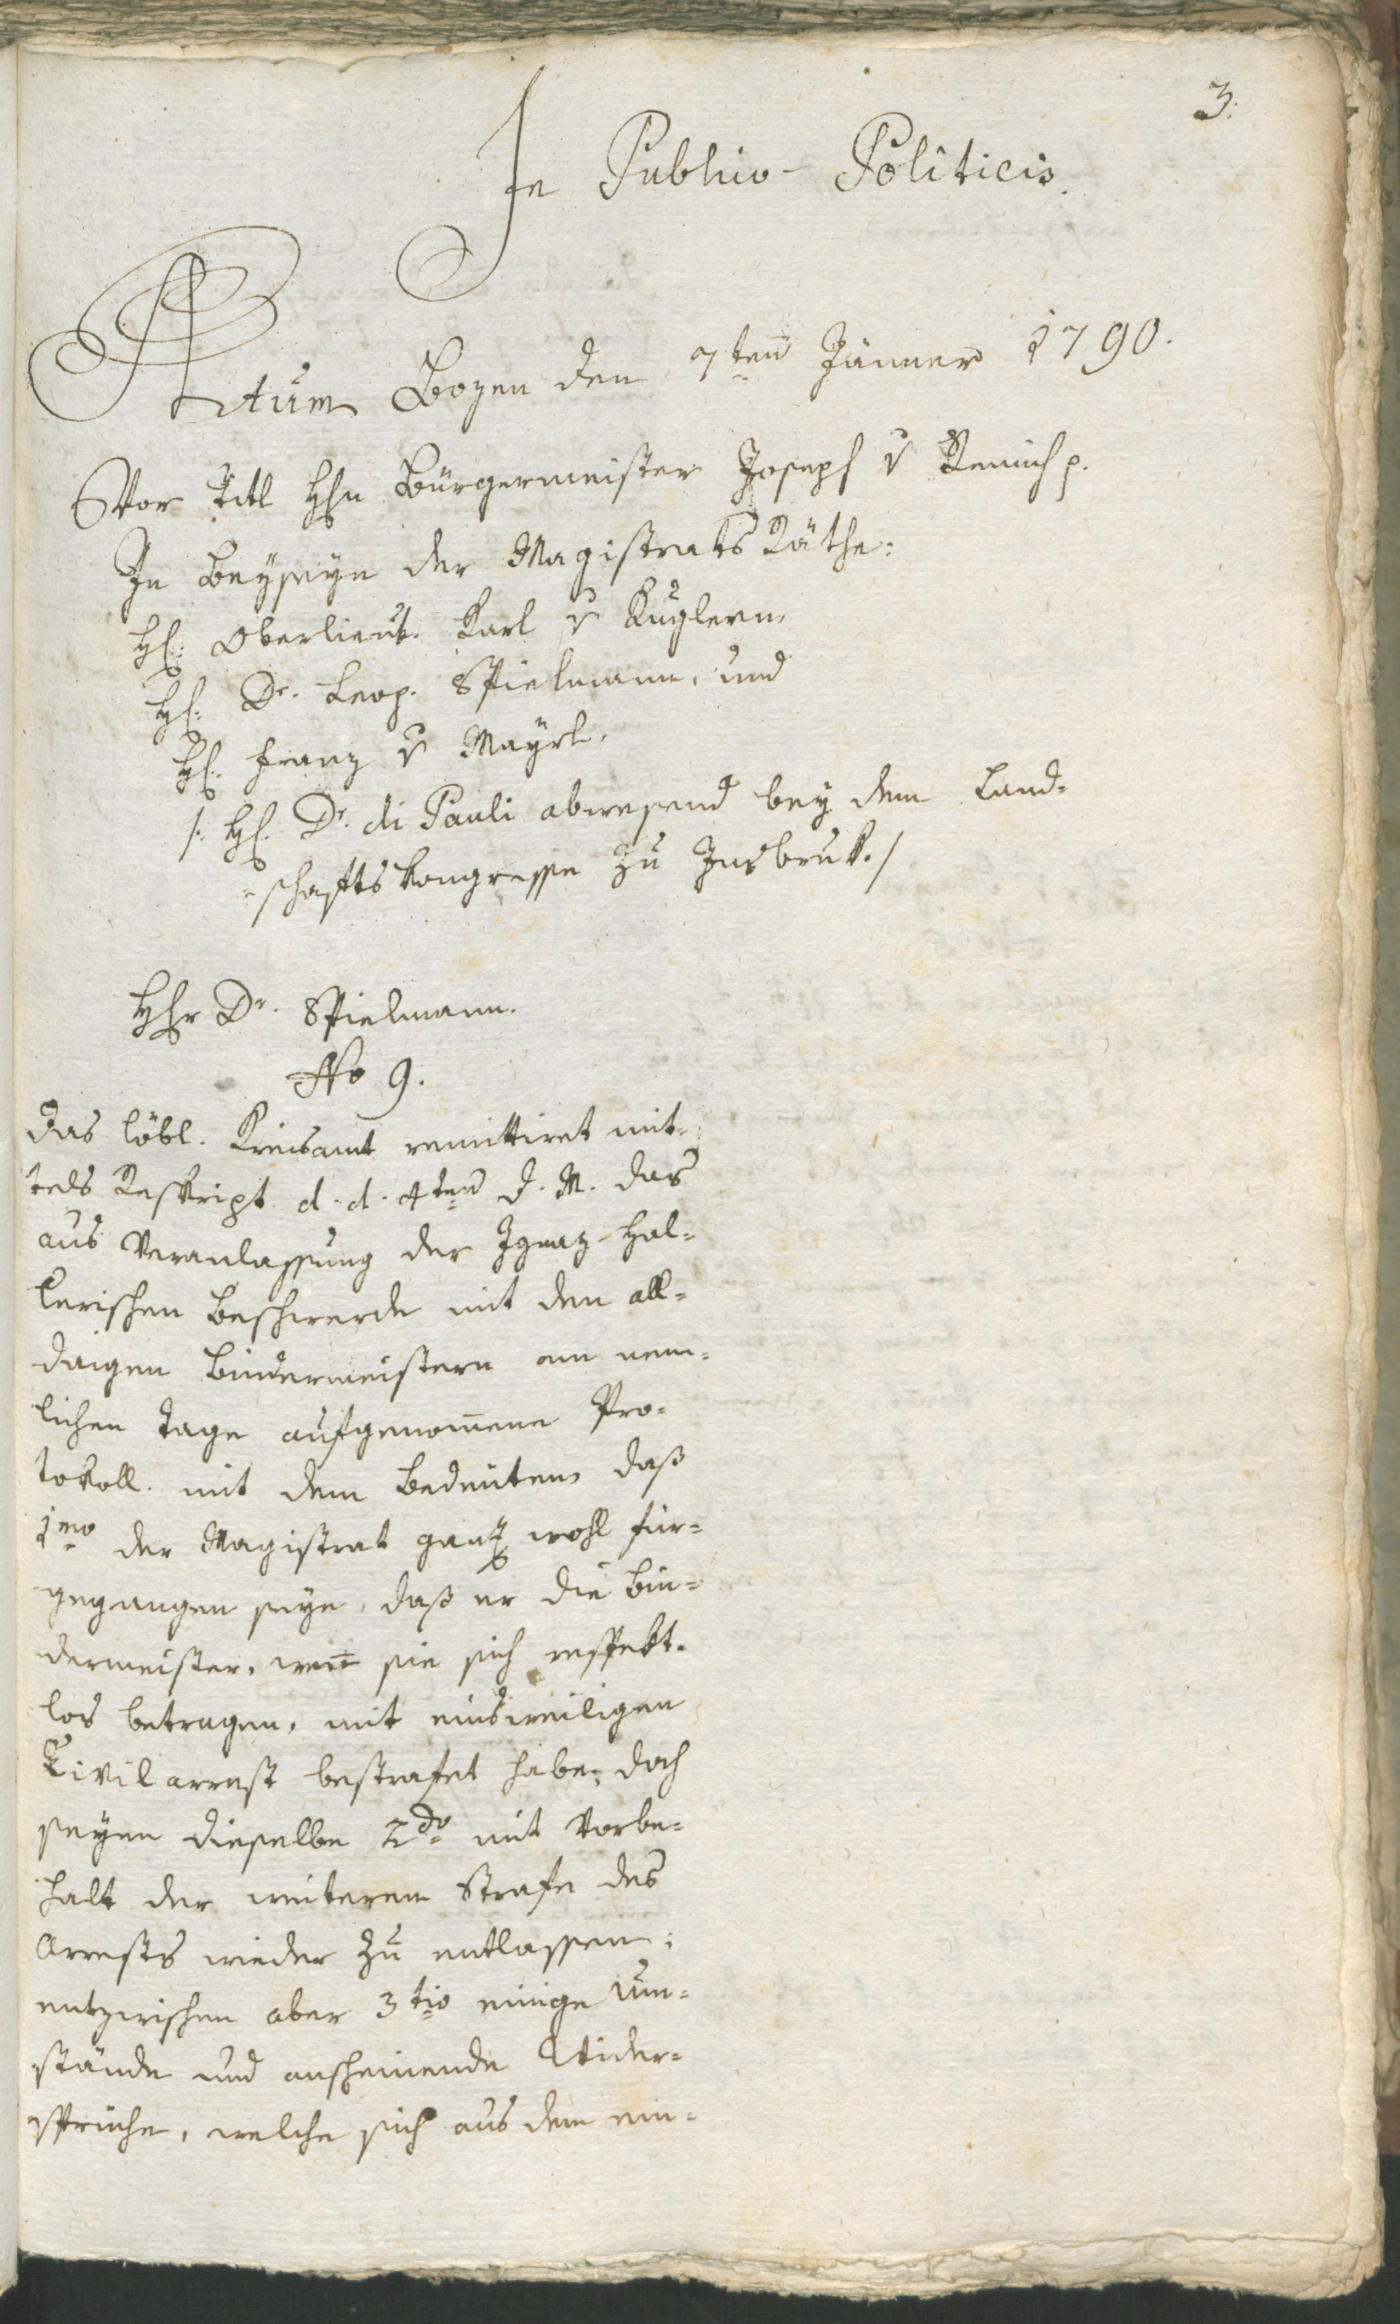 3.
In Publico-Politicis.
Actum Bozen den 7ten Jänner 1790.
Vor Titl Hhn Bürgermeister Joseph v Remich p.
In Beyseyn der Magistrats Räthe:
Hh: Oberlieut. Karl v Kuglern,
Hh: Dr. Leop. Spielmann, und
Hh: Franz v Mayrl.
/: Hh. Dr. di Pauli abwesend bey dem Land-
-schaftskongresse zu Insbruk. /
Hhr Dr. Spielmann.
No 9.
Das löbl. Kreisamt remittiret mit-
tels Reskript d. d. 4ten d. M. das
aus Veranlassung der Ignaz-Hal-
lerischen Beschwerde mit den all-
daigen Bindermeistern am nem-
lichen Tage aufgenom̄ene Pro-
tokoll. mit dem Bedeuten, daß
1mo der Magistrat ganz wohl für-
gegangen seye, daß er die Bin-
dermeister, wen̄ sie sich respekt-
los betragen, mit einsweiligen
Civilarrest bestrafet habe; doch
seyen dieselbe 2do mit Vorbe-
halt der weiteren Strafe des
Arrests wieder zu entlassen;
entzwischen aber 3tio einige Um-
stände und anscheinende Wider-
sprüche, welche sich aus dem ein-